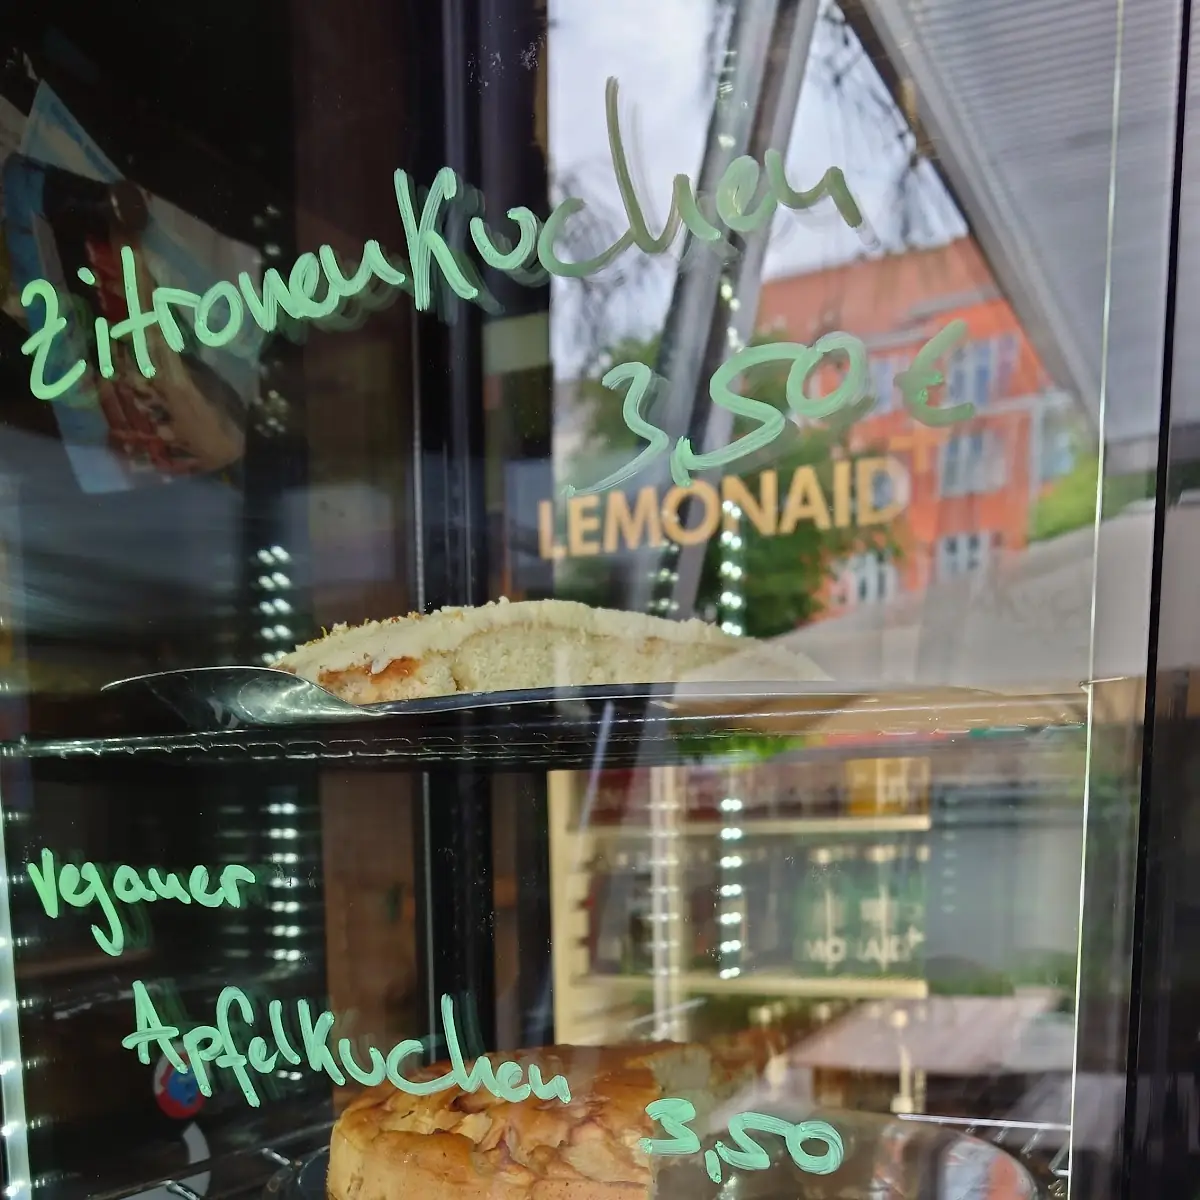 ZitronenKuchen
3,50 €
LEMONAID+
veganer
MONAID+
ApfelKuchen
3,50